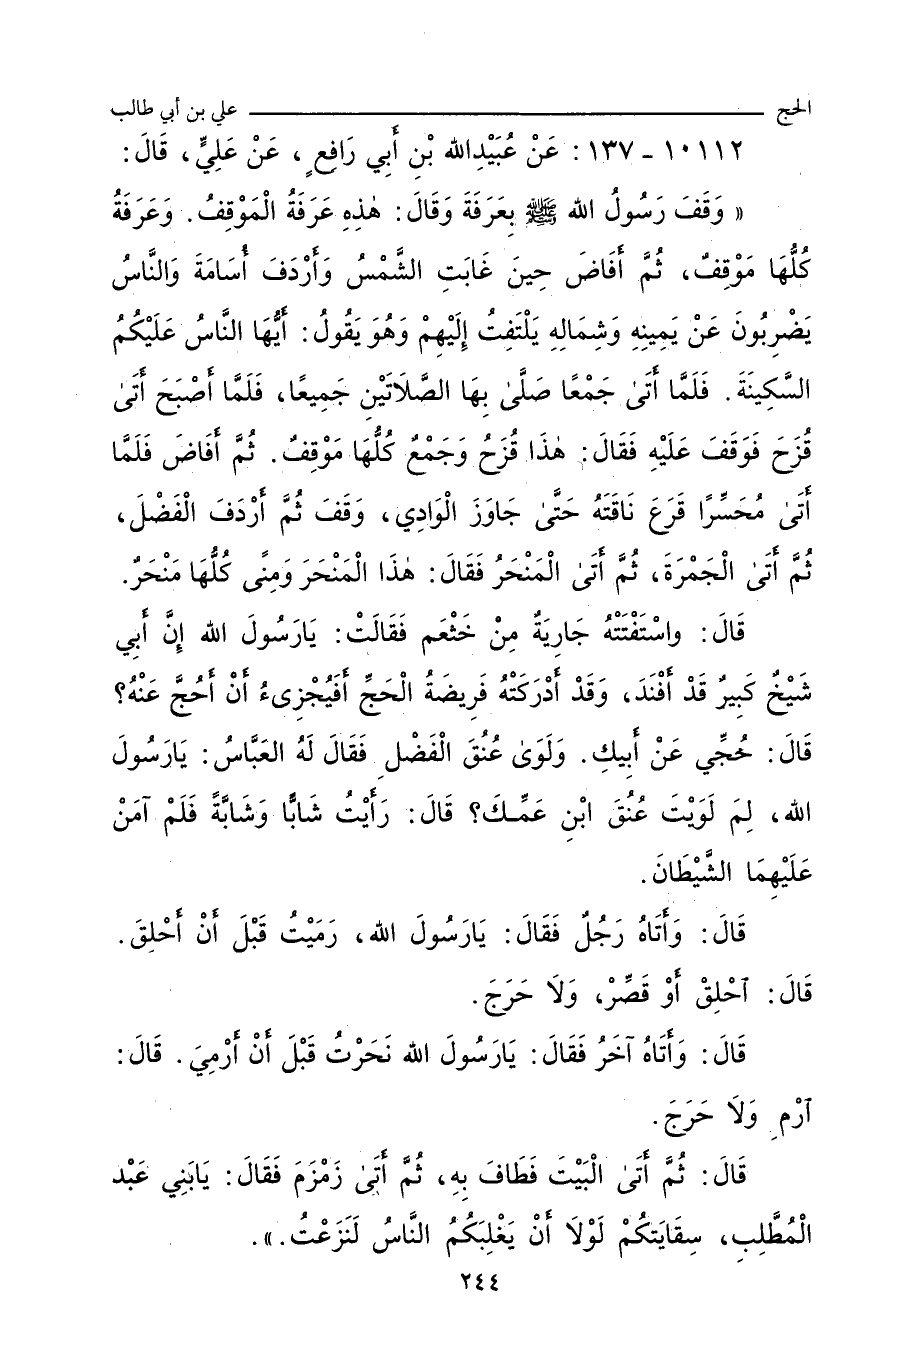 الحج علي بن أبي طالب
١٠١١٢ - ١٣٧ : عَنْ عُبَيْدِالله بْنِ أَبِي رَافِعٍ ، عَنْ عَلِيٍّ ، قَالَ :
« وَقَفَ رَسُولُ الله ﷺ بِعَرَفَةَ وَقَالَ : هٰذِهِ عَرَفَةُ الْمَوْقِفُ . وَعَرَفَةُ
كُلُّهَا مَوْقِفٌ ، ثُمَّ أَفَاضَ حِينَ غَابَتِ الشَّمْسُ وَأَرْدَفَ أُسَامَةَ وَالنَّاسُ
يَضْرِبُونَ عَنْ يَمِينِهِ وَشِمَالِهِ يَلْتَفِتُ إِلَيْهِمْ وَهُوَ يَقُولُ : أَيُّهَا النَّاسُ عَلَيْكُمُ
السَّكِينَةَ . فَلَمَّا أَتَىٰ جَمْعًا صَلَّىٰ بِهَا الصَّلَاتَيْنِ جَمِيعًا ، فَلَمَّا أَصْبَحَ أَتَىٰ
قُزَحَ فَوَقَفَ عَلَيْهِ فَقَالَ : هٰذَا قُزَحُ وَجَمْعٌ كُلُّهَا مَوْقِفٌ . ثُمَّ أَفَاضَ فَلَمَّا
أَتَىٰ مُحَسِّرًا قَرَعَ نَاقَتَهُ حَتَّىٰ جَاوَزَ الْوَادِي ، وَقَفَ ثُمَّ أَرْدَفَ الْفَضْلَ ،
ثُمَّ أَتَىٰ الْجَمْرَةَ ، ثُمَّ أَتَىٰ الْمَنْحَرُ فَقَالَ : هٰذَا الْمَنْحَرَ وَمِنًى كُلُّهَا مَنْحَرٌ .
قَالَ : واسْتَفْتَتْهُ جَارِيَةٌ مِنْ خَثْعَمِ فَقَالَتْ : يَارَسُولَ الله إِنَّ أَبِي
شَيْخٌ كَبِيرٌ قَدْ أَفْنَدَ ، وَقَدْ أَدْرَكَتْهُ فَرِيضَةُ الْحَجِّ أَفَيُجْزِىءُ أَنْ أَحُجَّ عَنْهُ؟
قَالَ : حُجِّي عَنْ أَبِيكِ . وَلَوَىٰ عُنُقَ الْفَضْلِ فَقَالَ لَهُ العَبَّاسُ : يَارَسُولَ
الله ، لِمَ لَوَيْتَ عُنُقَ ابْنِ عَمِّكَ؟ قَالَ : رَأَيْتُ شَابًّا وَشَابَّةً فَلَمْ آمَنْ
عَلَيْهِمَا الشَّيْطَانَ .
قَالَ : وَأَتَاهُ رَجُلٌ فَقَالَ : يَارَسُولَ الله ، رَمَيْتُ قَبْلَ أَنْ أَحْلِقَ .
قَالَ : ٱحْلِقْ أَوْ قَصِّرْ ، وَلَا حَرَجَ .
قَالَ : وَأَتَاهُ آخَرُ فَقَالَ : يَارَسُولَ الله نَحَرْتُ قَبْلَ أَنْ أَرْمِيَ . قَالَ :
ٱرْمِ وَلَا حَرَجَ .
قَالَ : ثُمَّ أَتَىٰ الْبَيْتَ فَطَافَ بِهِ ، ثُمَّ أَتَىٰ زَمْزَمَ فَقَالَ : يَابَنِي عَبْد
الْمُطَّلِبِ ، سِقَايَتكُمْ لَوْلَا أَنْ يَغْلِبَكُمُ النَّاسُ لَنَزَعْتُ . » .
٢٤٤